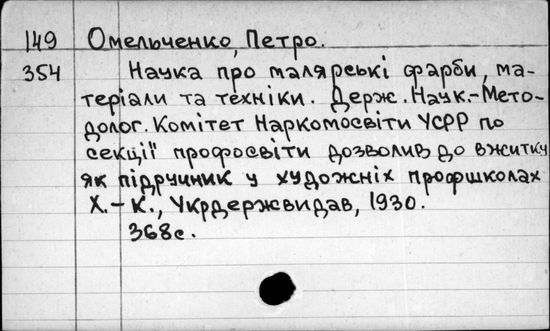 149 Омельченко, Петро.
354 Наука про малярські фарби, ма-
теріали та техніки. Держ. Наук.-Мето-
долог. Комітет Наркомосвіти УСРР по
секції профосвіти дозволив до вжитку
як підручник у художніх профшколах
Х.-К., Укрдержвидав, 1930.
368с.